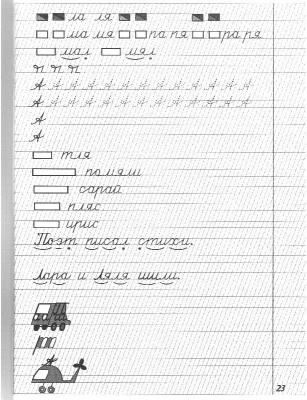 ла ля
ма мя па пя ра ря
мал мял
Я Я Я
А А А А А А А А А А А А А
А А А А А А А А А А А А А
А
А
тля
памяти
сарай
пляс
ирис
Поэт писал стихи.
Лара и Ляля шили.
23